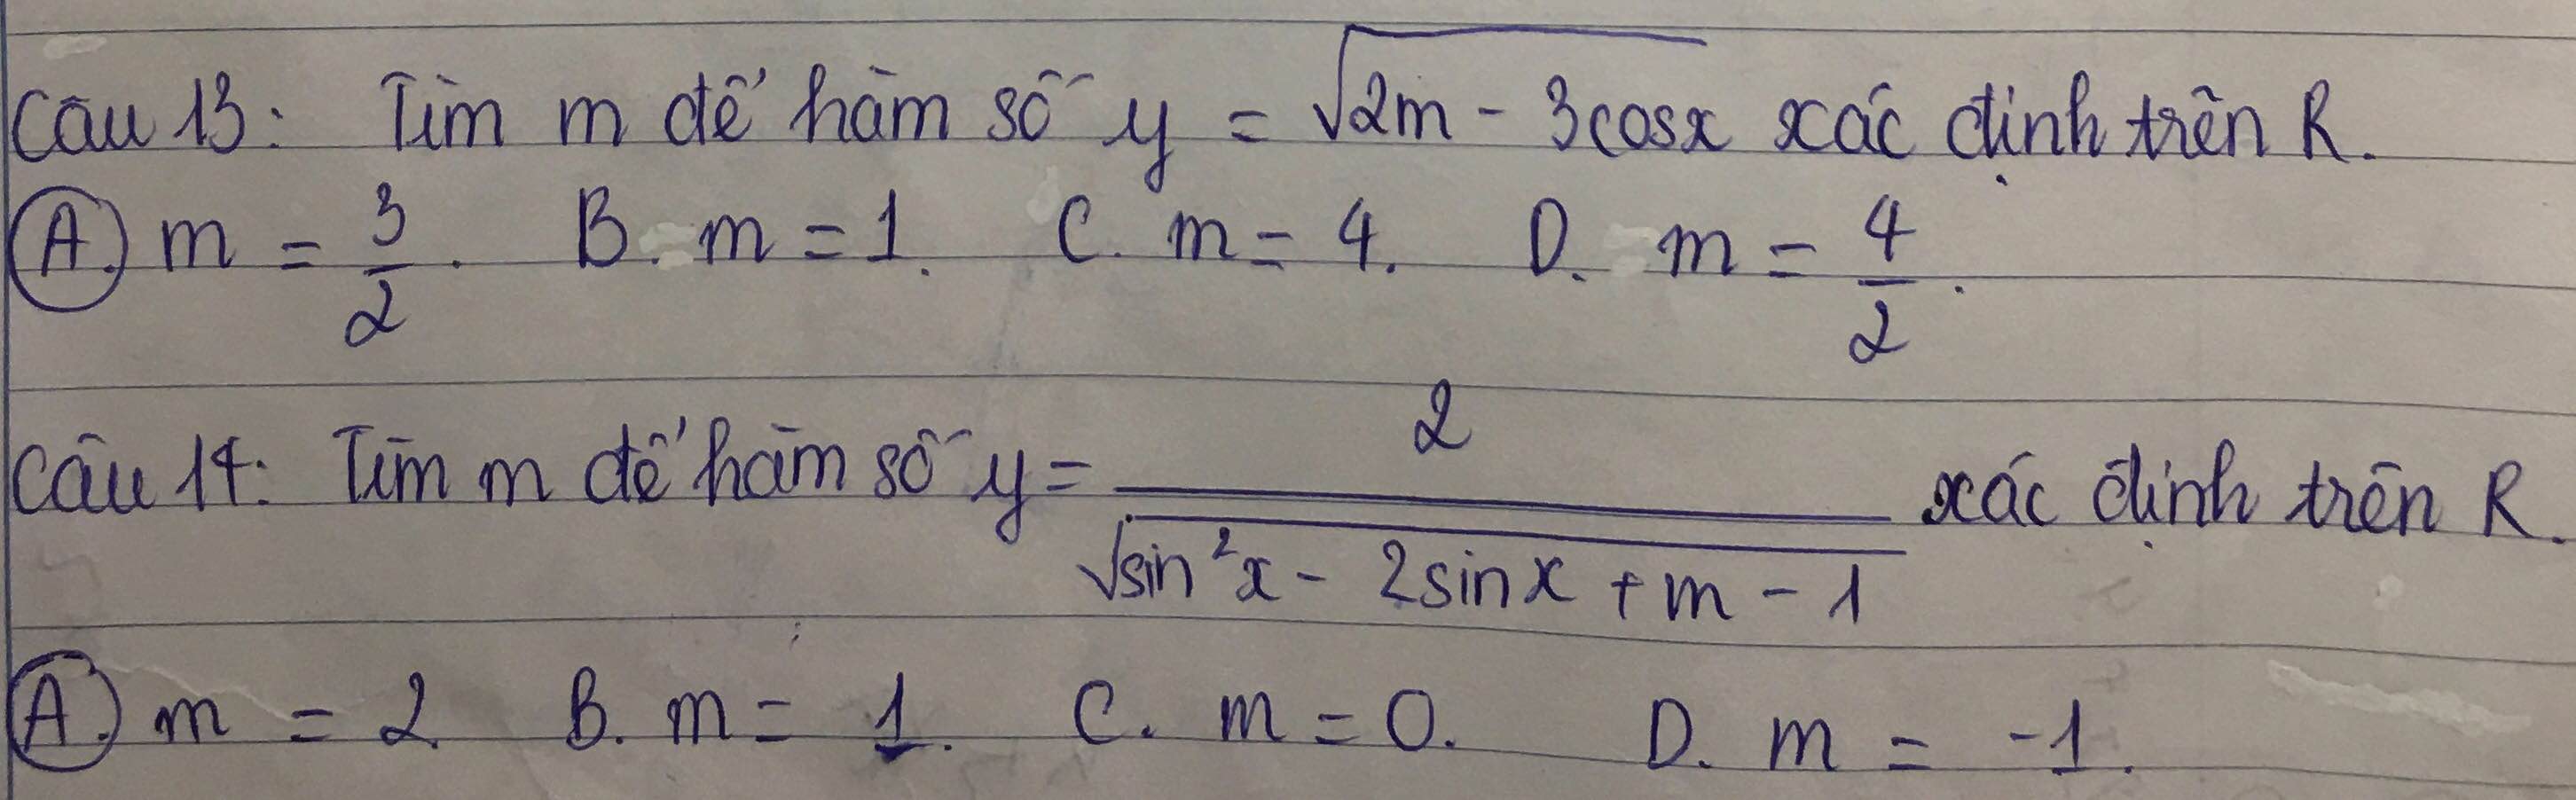 Câu 13: Tìm m để hàm số y = √(2m - 3cosx) xác định trên R.
A. m = 3/2. B. m = 1. C. m = 4. D. m = 4/2.
Câu 14: Tìm m để hàm số y = 2/√(sin²x - 2sinx + m - 1) xác định trên R.
A. m = 2. B. m = 1. C. m = 0. D. m = -1.